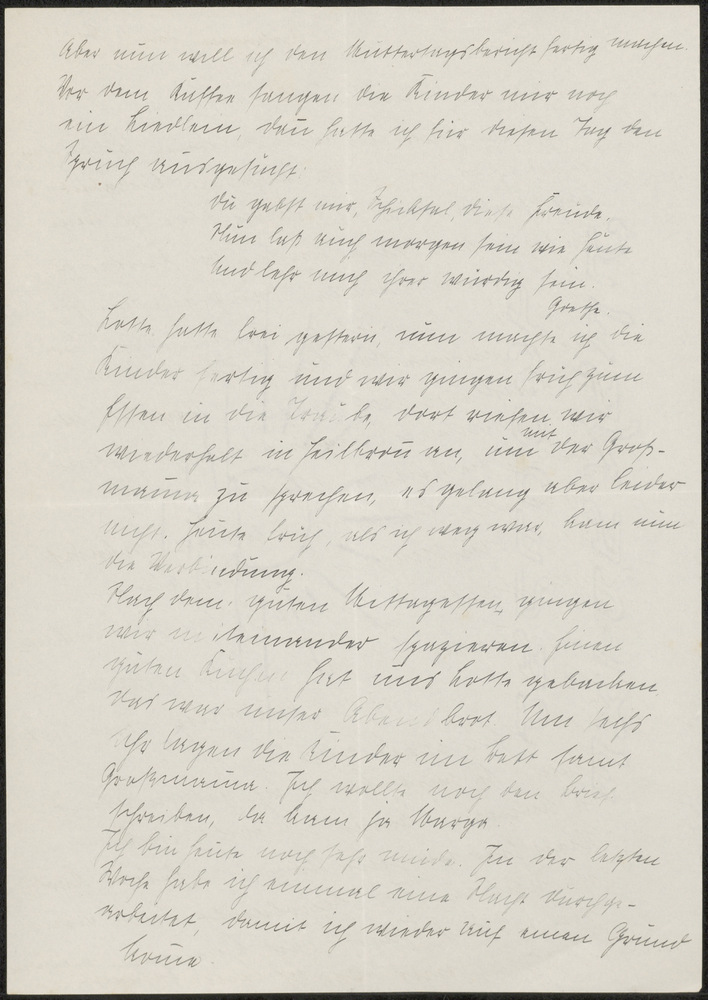 Aber nun will ich den Muttertagsbericht fertig machen.
Vor dem Kaffee sangen die Kinder mir noch
ein Liedlein, dan hatte ich für diesen Tag den
Spruch ausgesucht:
Du gabst mir, Schicksal, diese Freude,
Nun laß auch morgen sein wie heute
Und lehr mich ihrer würdig sein.
Goethe.
Lotte hatte frei gestern, nun machte ich die
Kinder fertig und wir gingen früh zum
Essen in die Traube, dort riefen wir
wiederholt in Heilbron an, um mit der Groß-
mama zu sprechen, es gelang aber leider
nicht. Heute früh, als ich weg war, kam nun
die Verbindung.
Nach dem guten Mittagessen gingen
wir miteinander spazieren. Einen
guten Kuchen hat uns Lotte gebacken
das war unser Abendbrot. Um sechs
Uhr lagen die Kinder im Bett samt
Großmama. Ich wollte noch den Brief
schreiben, da kam ja Marga.
Ich bin heute noch sehr müde. In der letzten
Woche habe ich einmal eine Nacht durchge-
arbeitet, damit ich wieder auf einen Grund
kome.